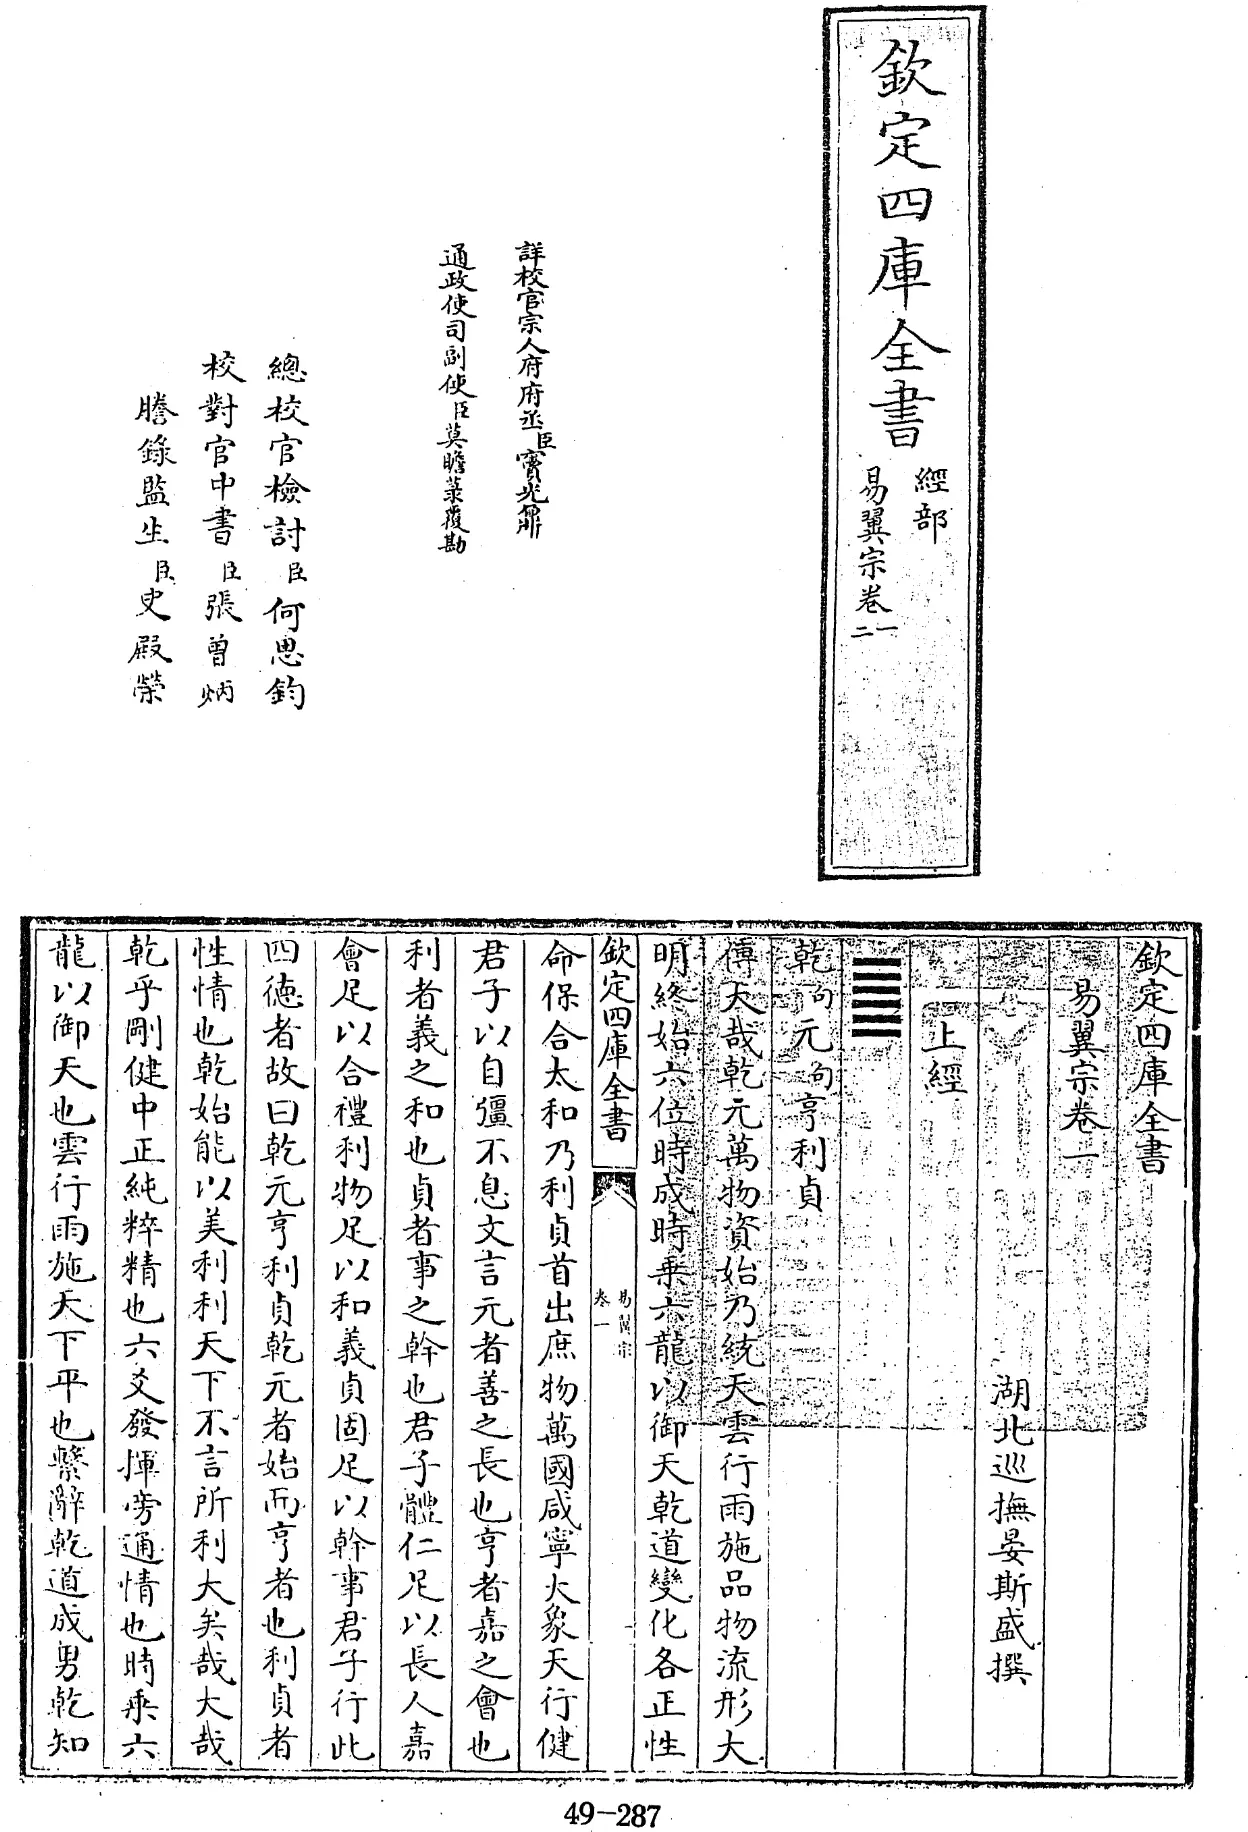 欽定四庫全書
經部
易翼宗卷一
二
詳校官宗人府府丞臣竇光鼐
通政使司副使臣莫瞻菉覆勘
總校官檢討臣何思鈞
校對官中書臣張曾炳
謄錄監生臣史殿榮
欽定四庫全書
易翼宗卷一
湖北巡撫晏斯盛撰
上經
䷀
乾句元句亨利貞
傳大哉乾元萬物資始乃統天雲行雨施品物流形大
明終始六位時成時乘六龍以御天乾道變化各正性
欽定四庫全書
易翼宗
卷一
命保合太和乃利貞首出庶物萬國咸寧大象天行健
君子以自彊不息文言元者善之長也亨者嘉之會也
利者義之和也貞者事之幹也君子體仁足以長人嘉
會足以合禮利物足以和義貞固足以幹事君子行此
四德者故曰乾元亨利貞乾元者始而亨者也利貞者
性情也乾始能以美利利天下不言所利大矣哉大哉
乾乎剛健中正純粹精也六爻發揮旁通情也時乘六
龍以御天也雲行雨施天下平也繫辭乾道成男乾知
49-287